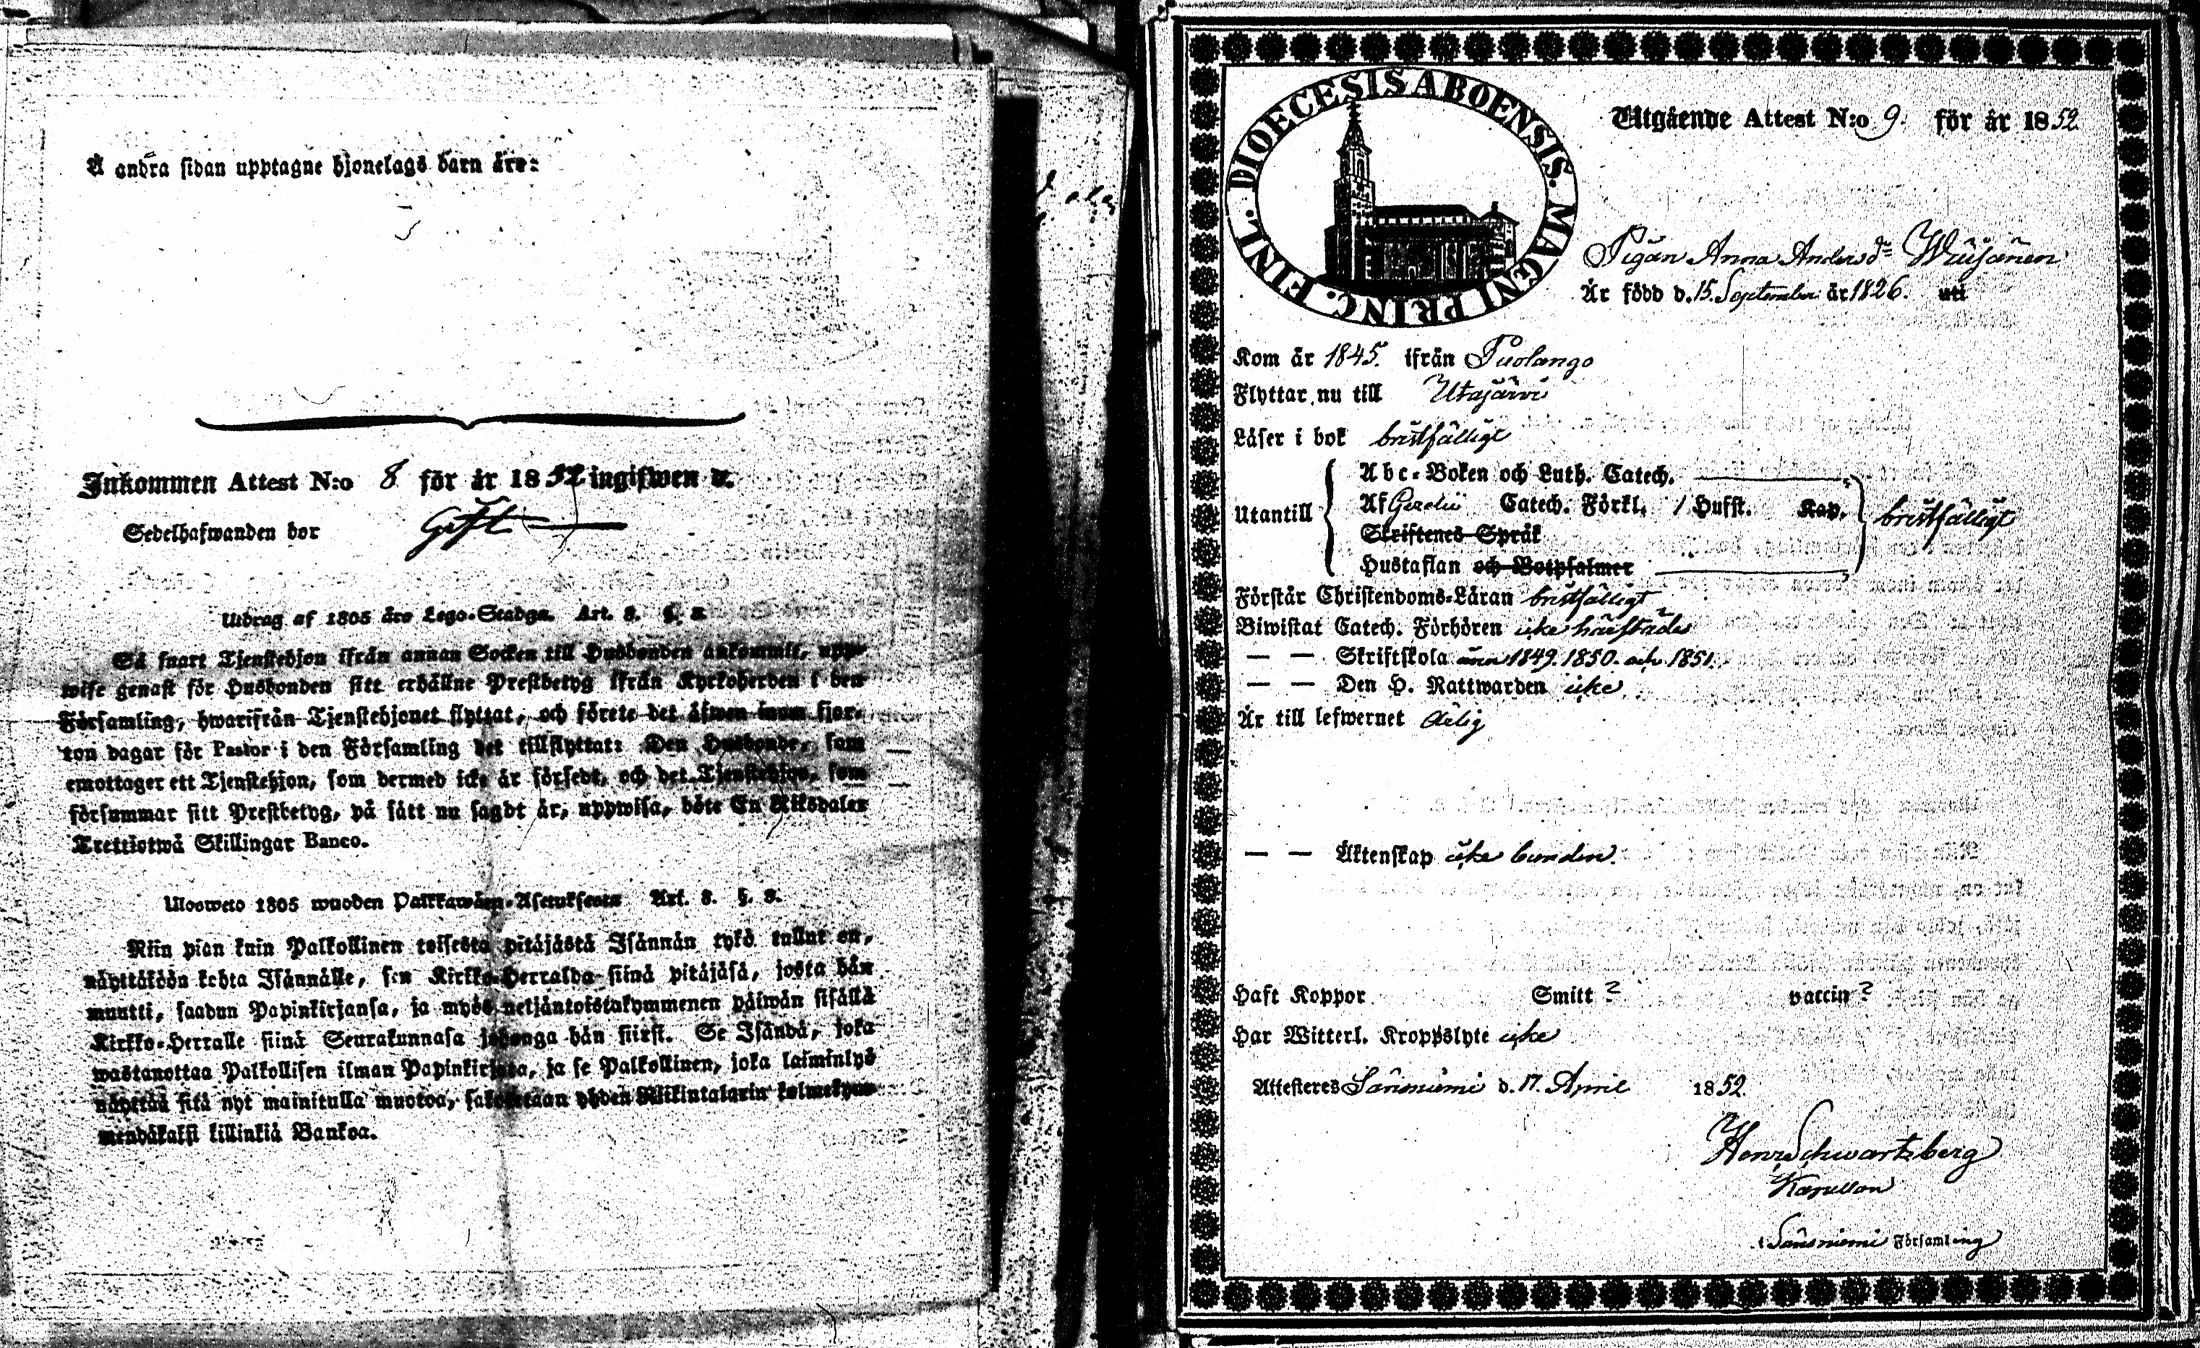 Å andra sidan upptagne hjonelags barn äro:
Inkommen Attest N:o 8 för år 1852 ingifwen d.
Sedelhafwanden bor Gift
Utdrag af 1805 års Lego-Stadga. Art. 8. §. 2.
Så snart Tjenstehjon ifrån annan Socken till Husbonden ankommit, upp-
wise genast för Husbonden sitt erhållne Prestbetyg ifrån Kyrkoherden i den
Församling, hwarifrån Tjenstehjonet flyttat, och förete det äfwen inom fjor-
ton dagar för Pastor i den Församling det tillflyttat: Den Husbonde, som
emottager ett Tjenstehjon, som dermed icke är försedt, och det Tjenstehjon, som
försummar sitt Prestbetyg, på sätt nu sagdt är, uppwisa, böte En Riksdaler
Trettiotwå Skillingar Banco.
Ulosweto 1805 wuoden Palkkawäen-Asetuksesta Art. 8. §. 2.
Niin pian kuin Palkollinen toisesta pitäjästä Isännän tykö tullut on,
näyttäköön kohta Isännälle, sen Kirkko-Herralda siinä pitäjäsä, josta hän
muutti, saadun Papinkirjansa, ja myös neljäntoistakymmenen päiwän sisällä
Kirkko-Herralle siinä Seurakunnasa johonga hän siirst. Se Isändä, joka
wastanottaa Palkollisen ilman Papinkirjata, ja se Palkollinen, joka laiminlyö
näyttää sitä nyt mainitulla muotoa, sakotetaan yhden Riikintalarin kolmekym-
mendäkaksi killinkiä Bankoa.
DIOECESIS ABOENSIS. MAGNI PRINC. FINL.
Utgående Attest N:o 9. för år 1852
Pigan Anna Andersdr Wäisänen
Är född d. 15. September år 1826. uti
Kom år 1845. ifrån Puolango
Flyttar nu till Utajärvi
Läser i bok bristfälligt
Abc-Boken och Luth. Catech.
Utantill Af Gezelii Catech. Förkl. 1 Hufst. Kap. bristfälligt
Skriftenes Språk
Hustaflan och Botpsalmer
Förstår Christendoms-Läran bristfälligt
Biwistat Catech. Förhören icke härstädes
— — Skriftskola åren 1849. 1850. och 1851.
— — Den H. Nattwarden icke
Är till lefwernet
— — Äktenskap icke bunden.
Haft Koppor Smitt ? vaccin ?
Har Witterl. Kroppslyte icke
Attesteres Säräisniemi d. 17. April 1852.
Henr Schwartzberg
Kapellan
i Säräisniemi Församling